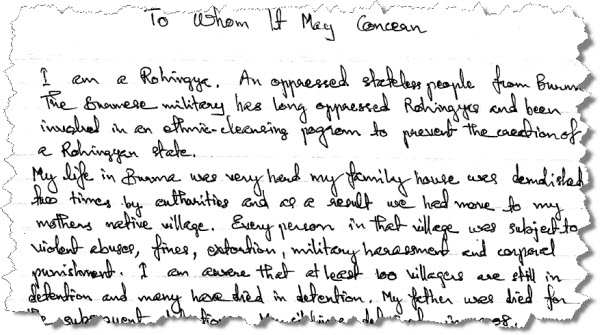 To Whom It May Concern
I am a Rohingya. An oppressed stateless people from Burma
The Burmese military has long oppressed Rohingyas and been
involved in an ethnic-cleansing pogrom to prevent the creation of
a Rohingyan state.
My life in Burma was very hard my family house was demolished
two times by authorities and as a result we had move to my
mothers native village. Every person in that village was subject to
violent abuses, fines, extortion, military harassment and corporal
punishment. I am aware that at least 100 villagers are still in
detention and many have died in detention. My father was died for
the subsequent